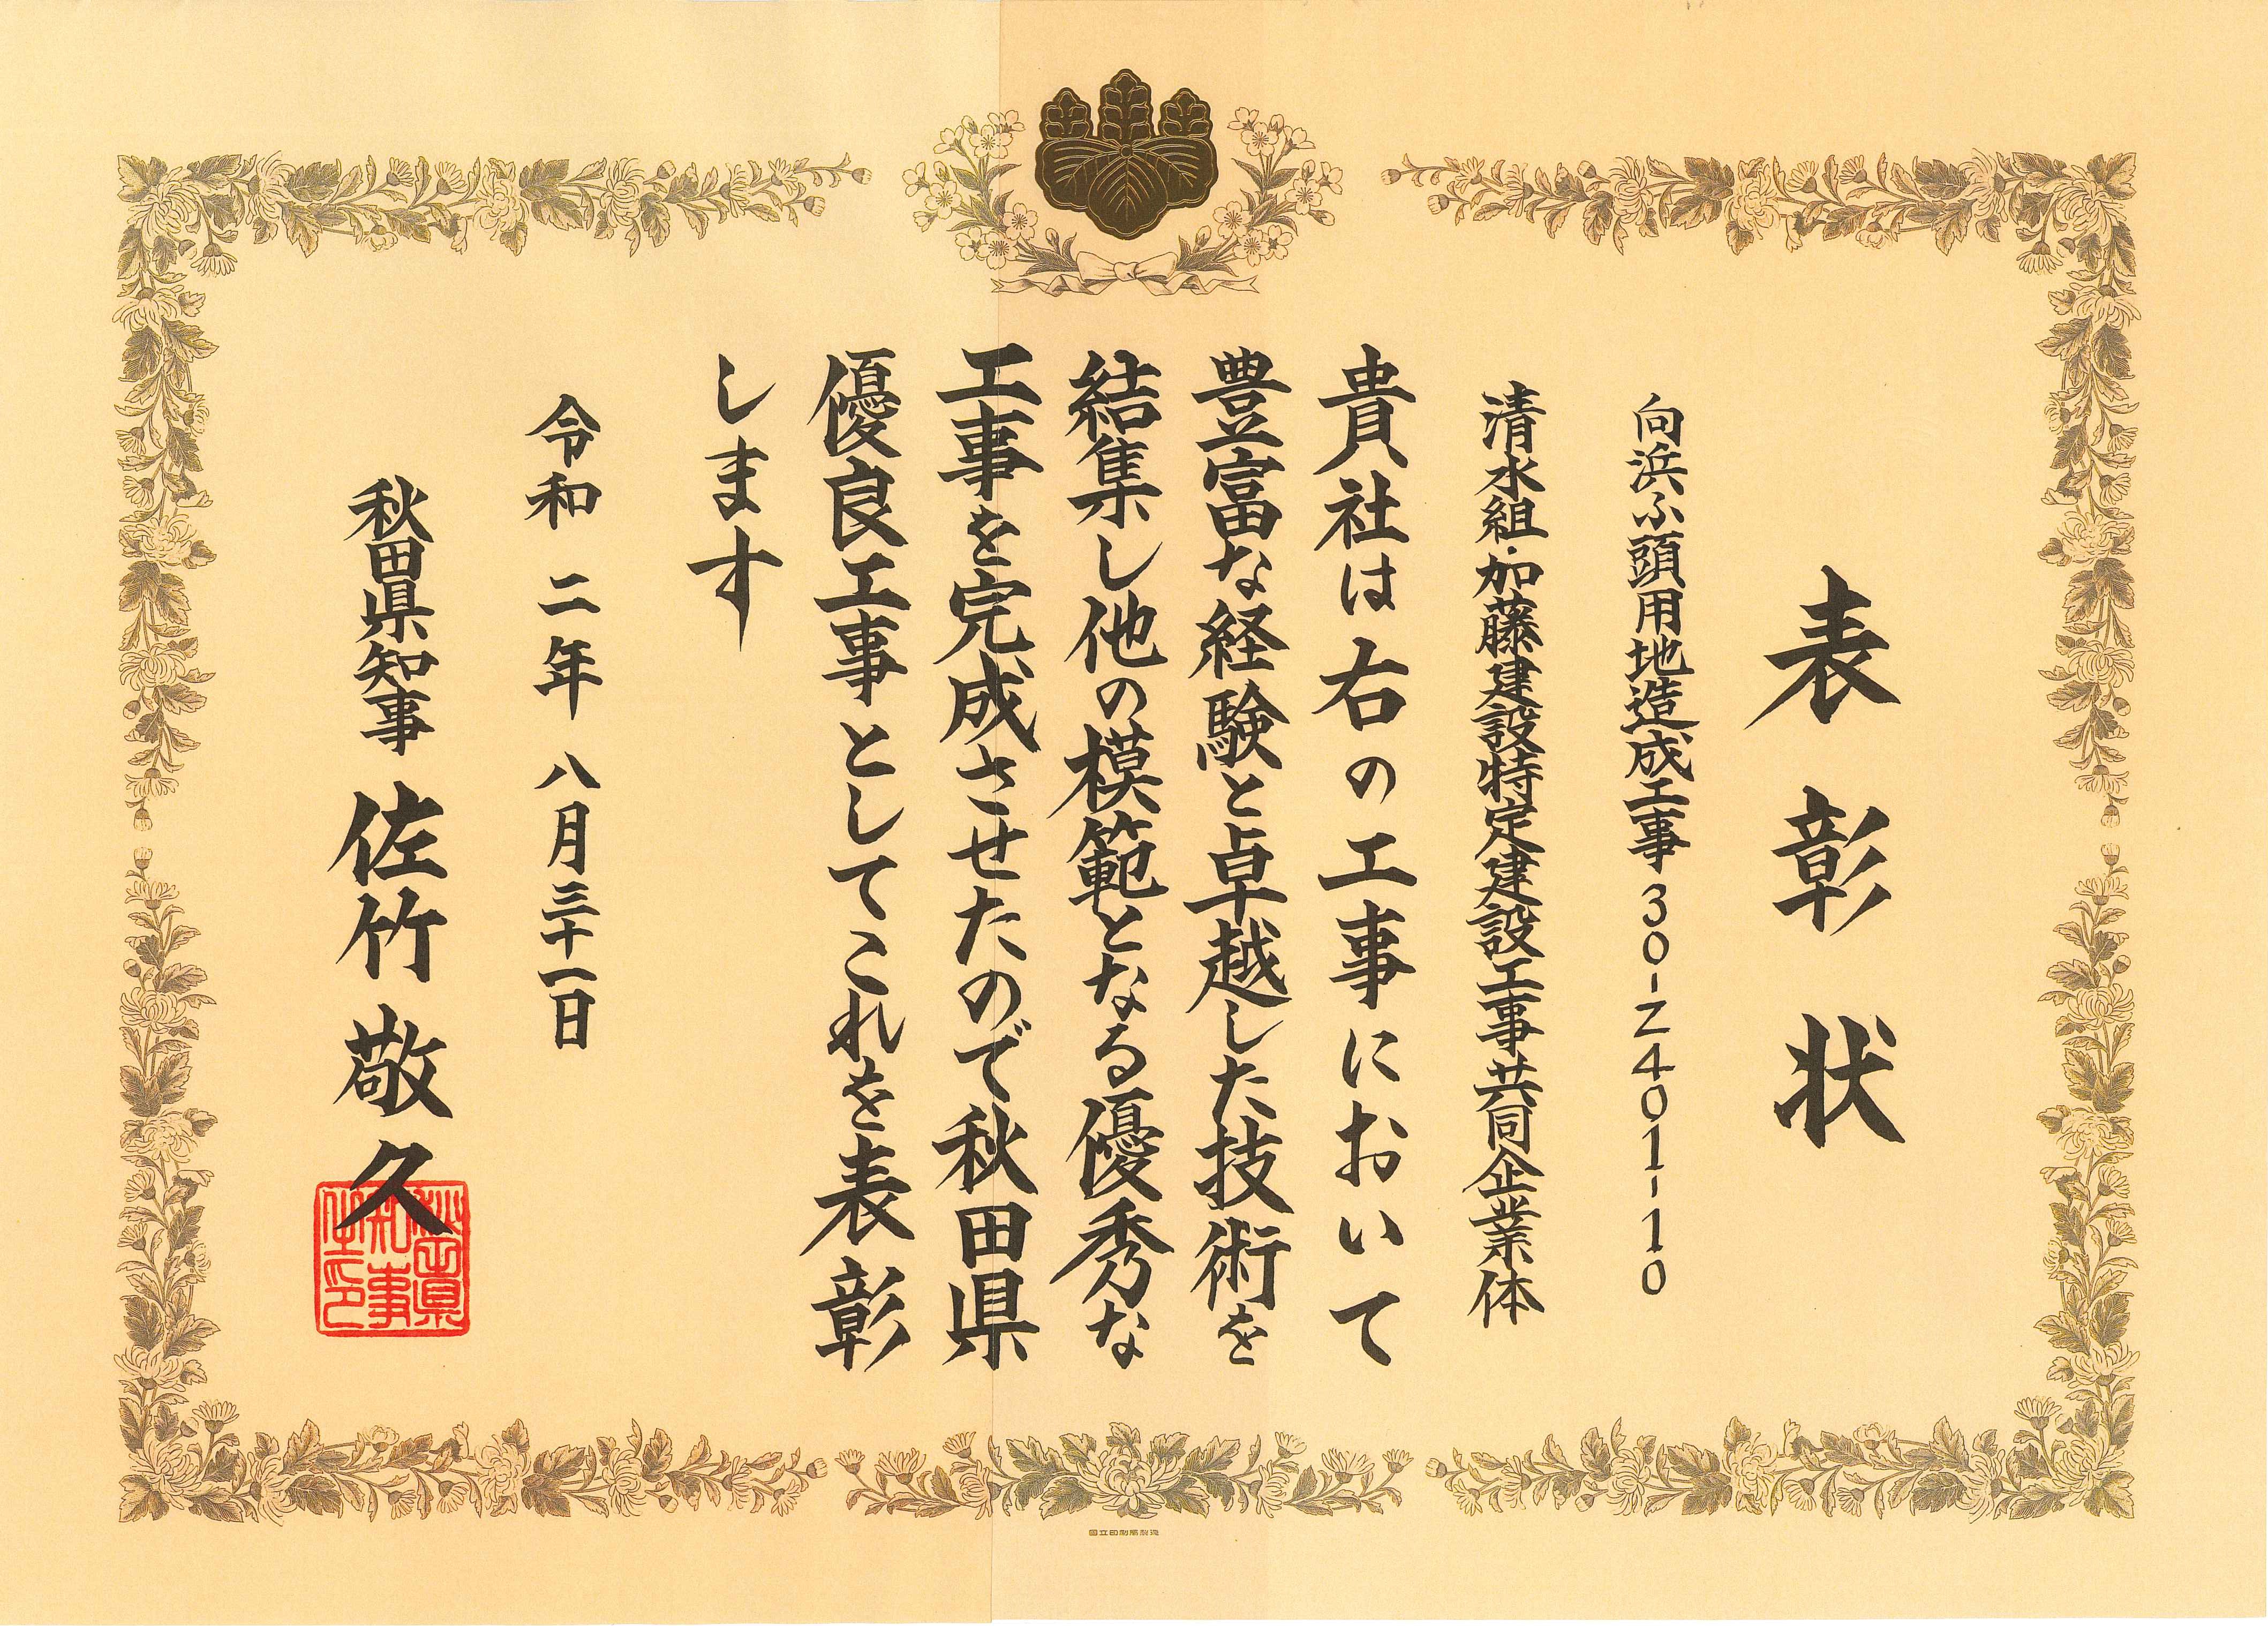 表彰状
向浜ふ頭用地造成工事30-Z401-10
清水組・加藤建設特定建設工事共同企業体
貴社は右の工事において
豊富な経験と卓越した技術を
結集し他の模範となる優秀な
工事を完成させたので秋田県
優良工事としてこれを表彰
します
令和二年八月三十一日
秋田県知事 佐竹敬久
秋田県知事之印
國立印刷局製造